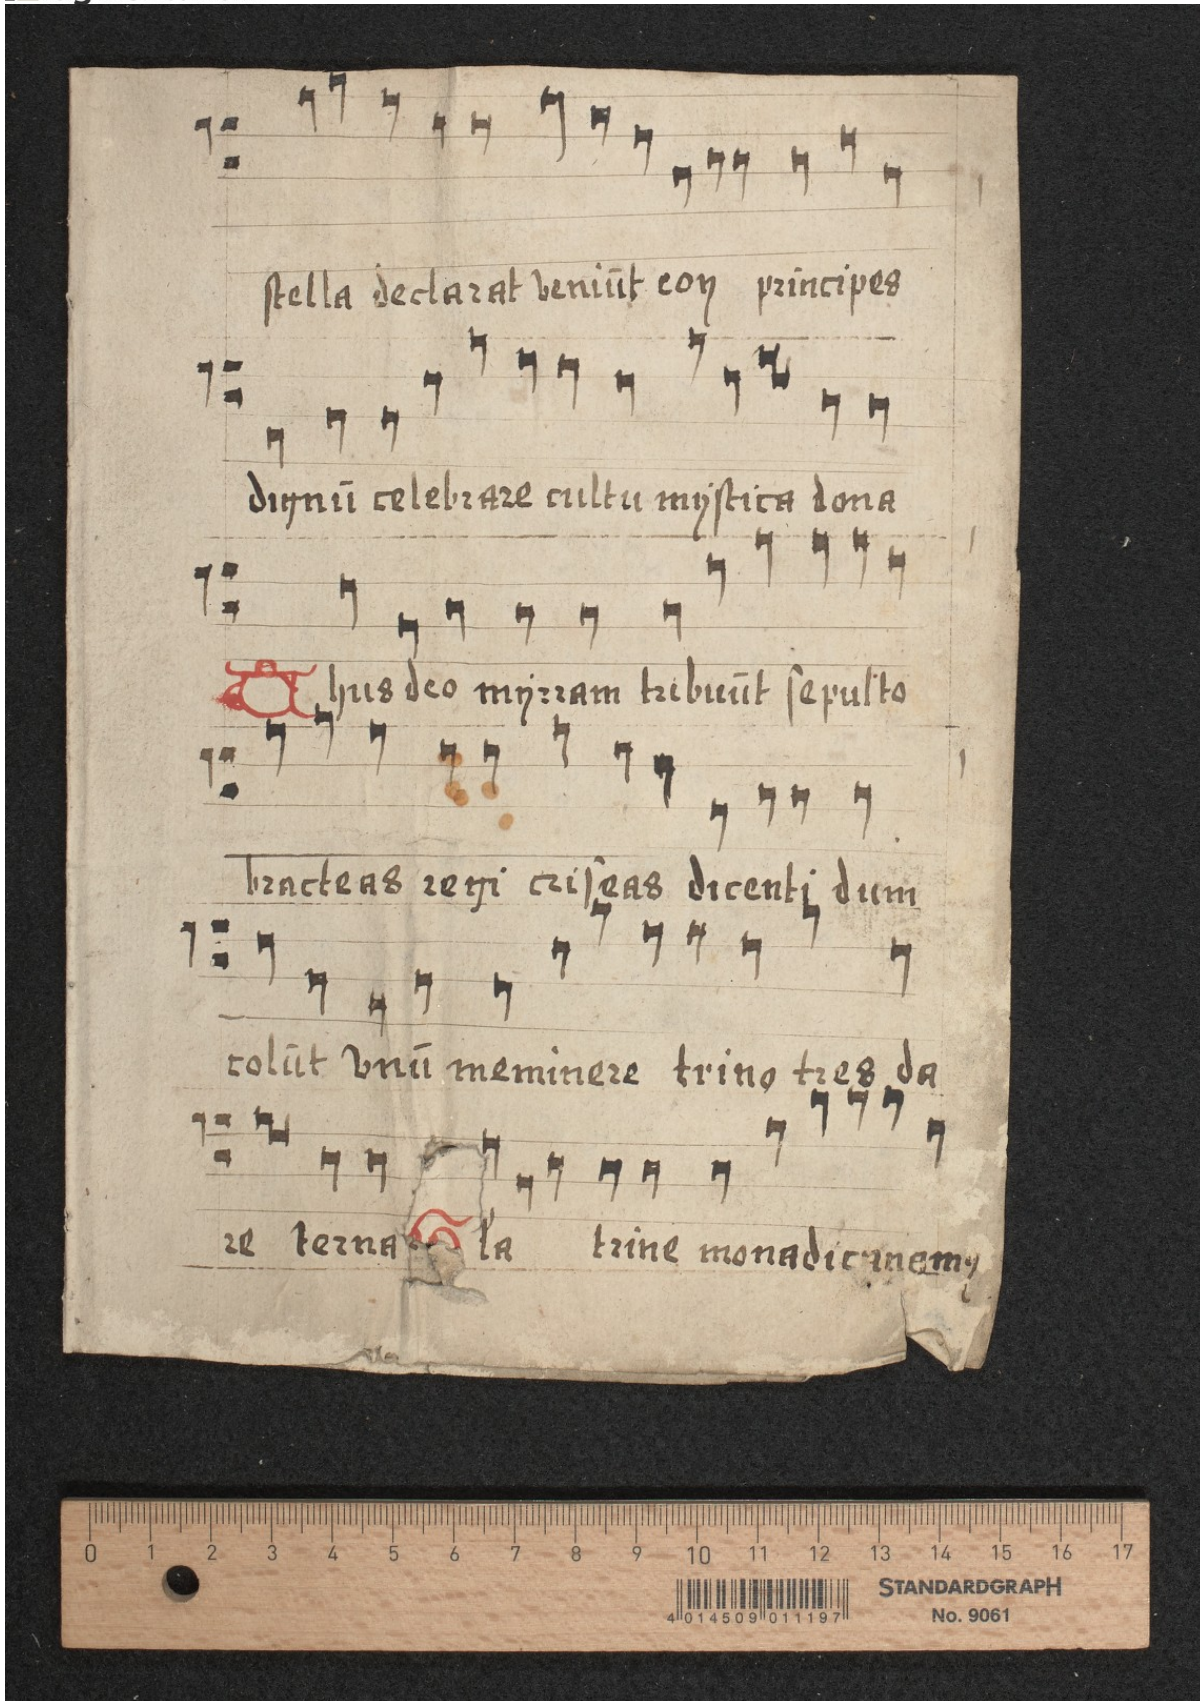 stella declarat veniūt eoꝝ principes
dignū celebrare cultu mystica dona
Thus deo myrram tribuūt sepulto
bracteas regi criseas dicenti dum
colūt vnū meminere trino tres da
re terna la trine monadi
0 1 2 3 4 5 6 7 8 9 10 11 12 13 14 15 16 17
STANDARDGRAPH
4 014509 011197
No. 9061